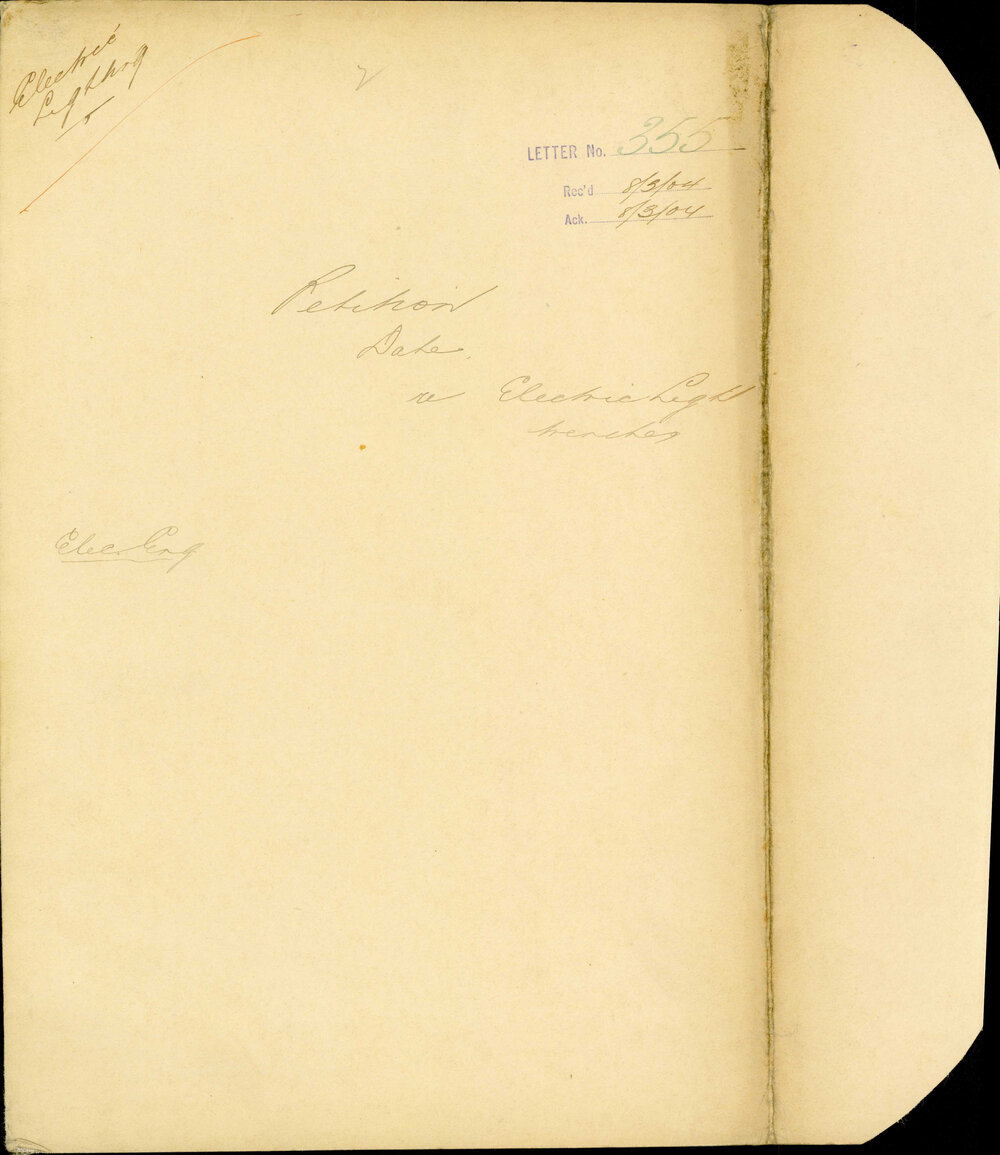 Electric
Lighting
5
LETTER No. 355
Rec'd 8/3/04
Ack. 8/3/04
Petition
Date.
re Electric Light
trenches
Elec. Eng